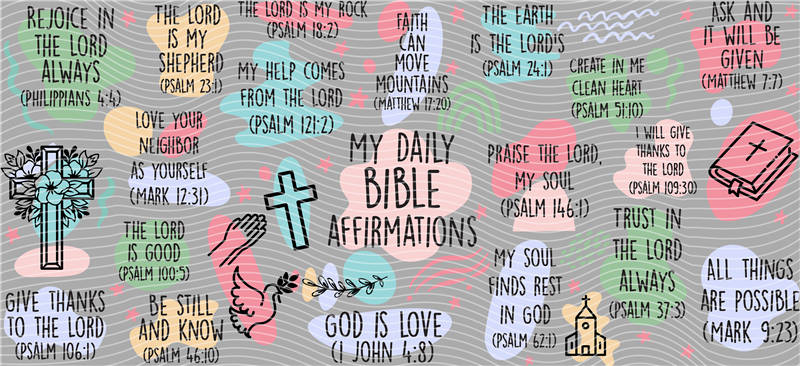 REJOICE IN
THE LORD
ALWAYS
(PHILIPPIANS 4:4)
THE LORD
IS MY
SHEPHERD
(PSALM 23:1)
THE LORD IS MY ROCK
(PSALM 18:2)
MY HELP COMES
FROM THE LORD
(PSALM 121:2)
FAITH
CAN
MOVE
MOUNTAINS
(MATTHEW 17:20)
THE EARTH
IS THE LORD'S
(PSALM 24:1)
CREATE IN ME
CLEAN HEART
(PSALM 51:10)
ASK AND
IT WILL BE
GIVEN
(MATTHEW 7:7)
LOVE YOUR
NEIGHBOR
AS YOURSELF
(MARK 12:31)
MY DAILY
BIBLE
AFFIRMATIONS
PRAISE THE LORD,
MY SOUL
(PSALM 146:1)
I WILL GIVE
THANKS TO
THE LORD
(PSALM 109:30)
THE LORD
IS GOOD
(PSALM 100:5)
TRUST IN
THE LORD
ALWAYS
(PSALM 37:3)
GIVE THANKS
TO THE LORD
(PSALM 106:1)
BE STILL
AND KNOW
(PSALM 46:10)
GOD IS LOVE
(1 JOHN 4:8)
MY SOUL
FINDS REST
IN GOD
(PSALM 62:1)
ALL THINGS
ARE POSSIBLE
(MARK 9:23)